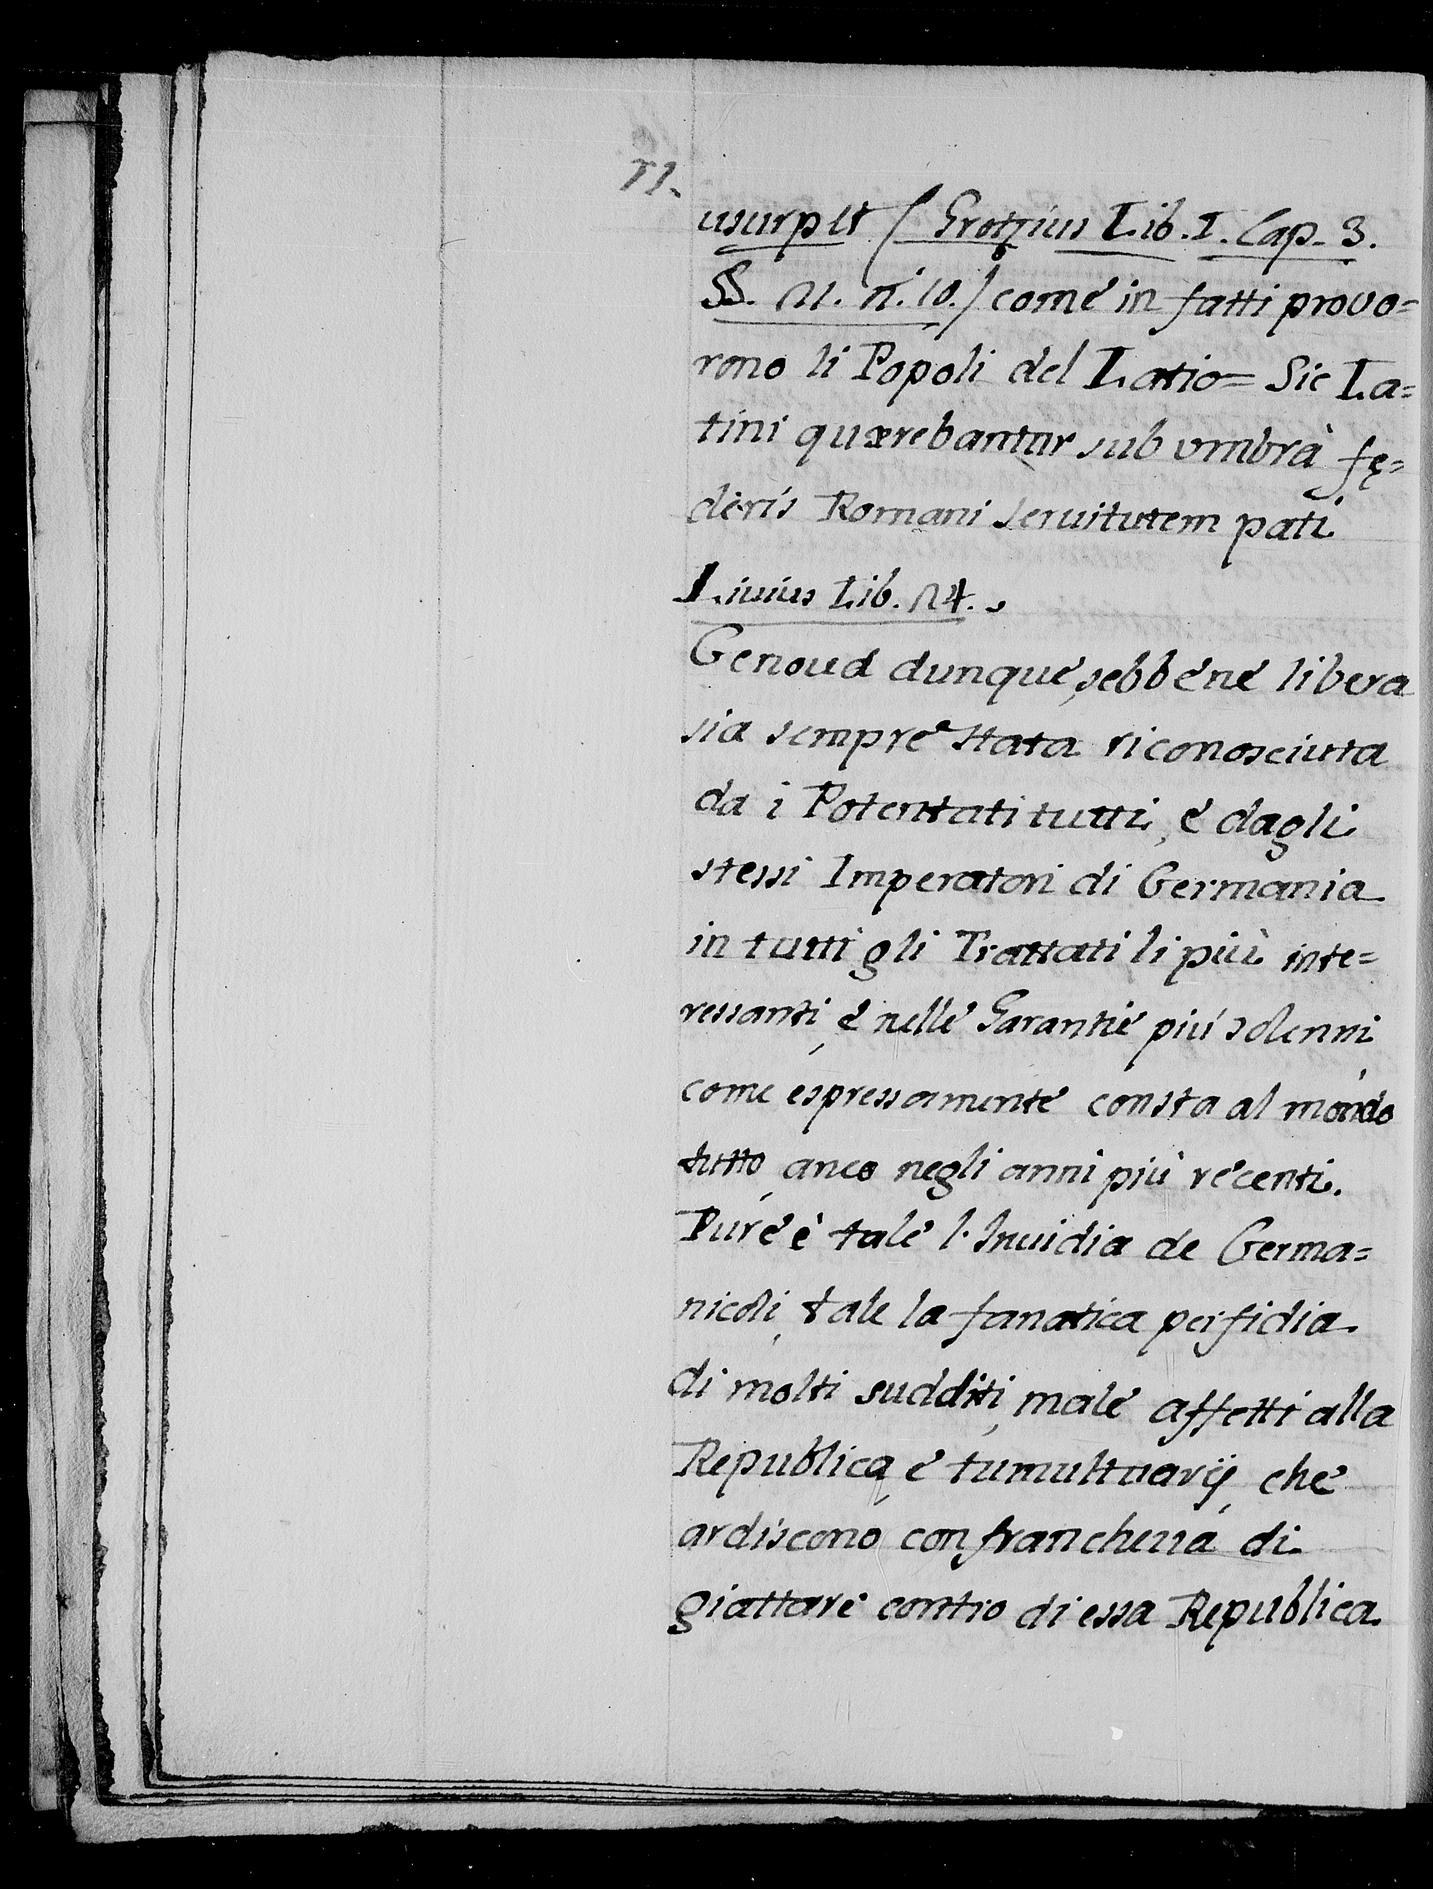 11.
usurpet (Grotzius Lib. I. Cap. 3.
§§. 21. n. 10.) come in fatti provo=
rono li Popoli del Latio= Sic La=
tini quærebantur sub vmbrà fę=
deris Romani seruitutem pati
Liuius Lib. 24.
Genoua dunque, sebbene libera
sia sempre stata riconosciuta
da i Potentati tutti, e dagli
stessi Imperatori di Germania
in tutti gli Trattati li più inte=
ressanti, e nelle Garantie più solenni,
come espressamente consta al mondo
tutto, anco negli anni più recenti.
Pure è tale l'Inuidia de Germa=
nicoli, tale la fanatica perfidia
di molti sudditi, male affetti alla
Republica, e tumultuarij, che
ardiscono con franchezza di
giattare contro di essa Republica